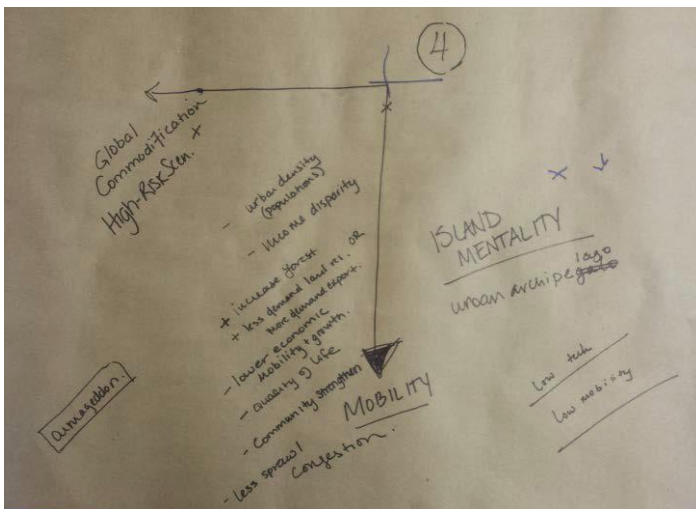 4
Global
Commodification
High-Risk Scen. +
- urban density
(populations)
- income disparity
+ increase forest
+ less demand land rel. OR
more demand export.
- lower economic
mobility + growth.
- quality of life
- Community strengthen
- less sprawl
congestion.
MOBILITY
armageddon.
x ↓
ISLAND
MENTALITY
urban archipelago
low tech
low mobility